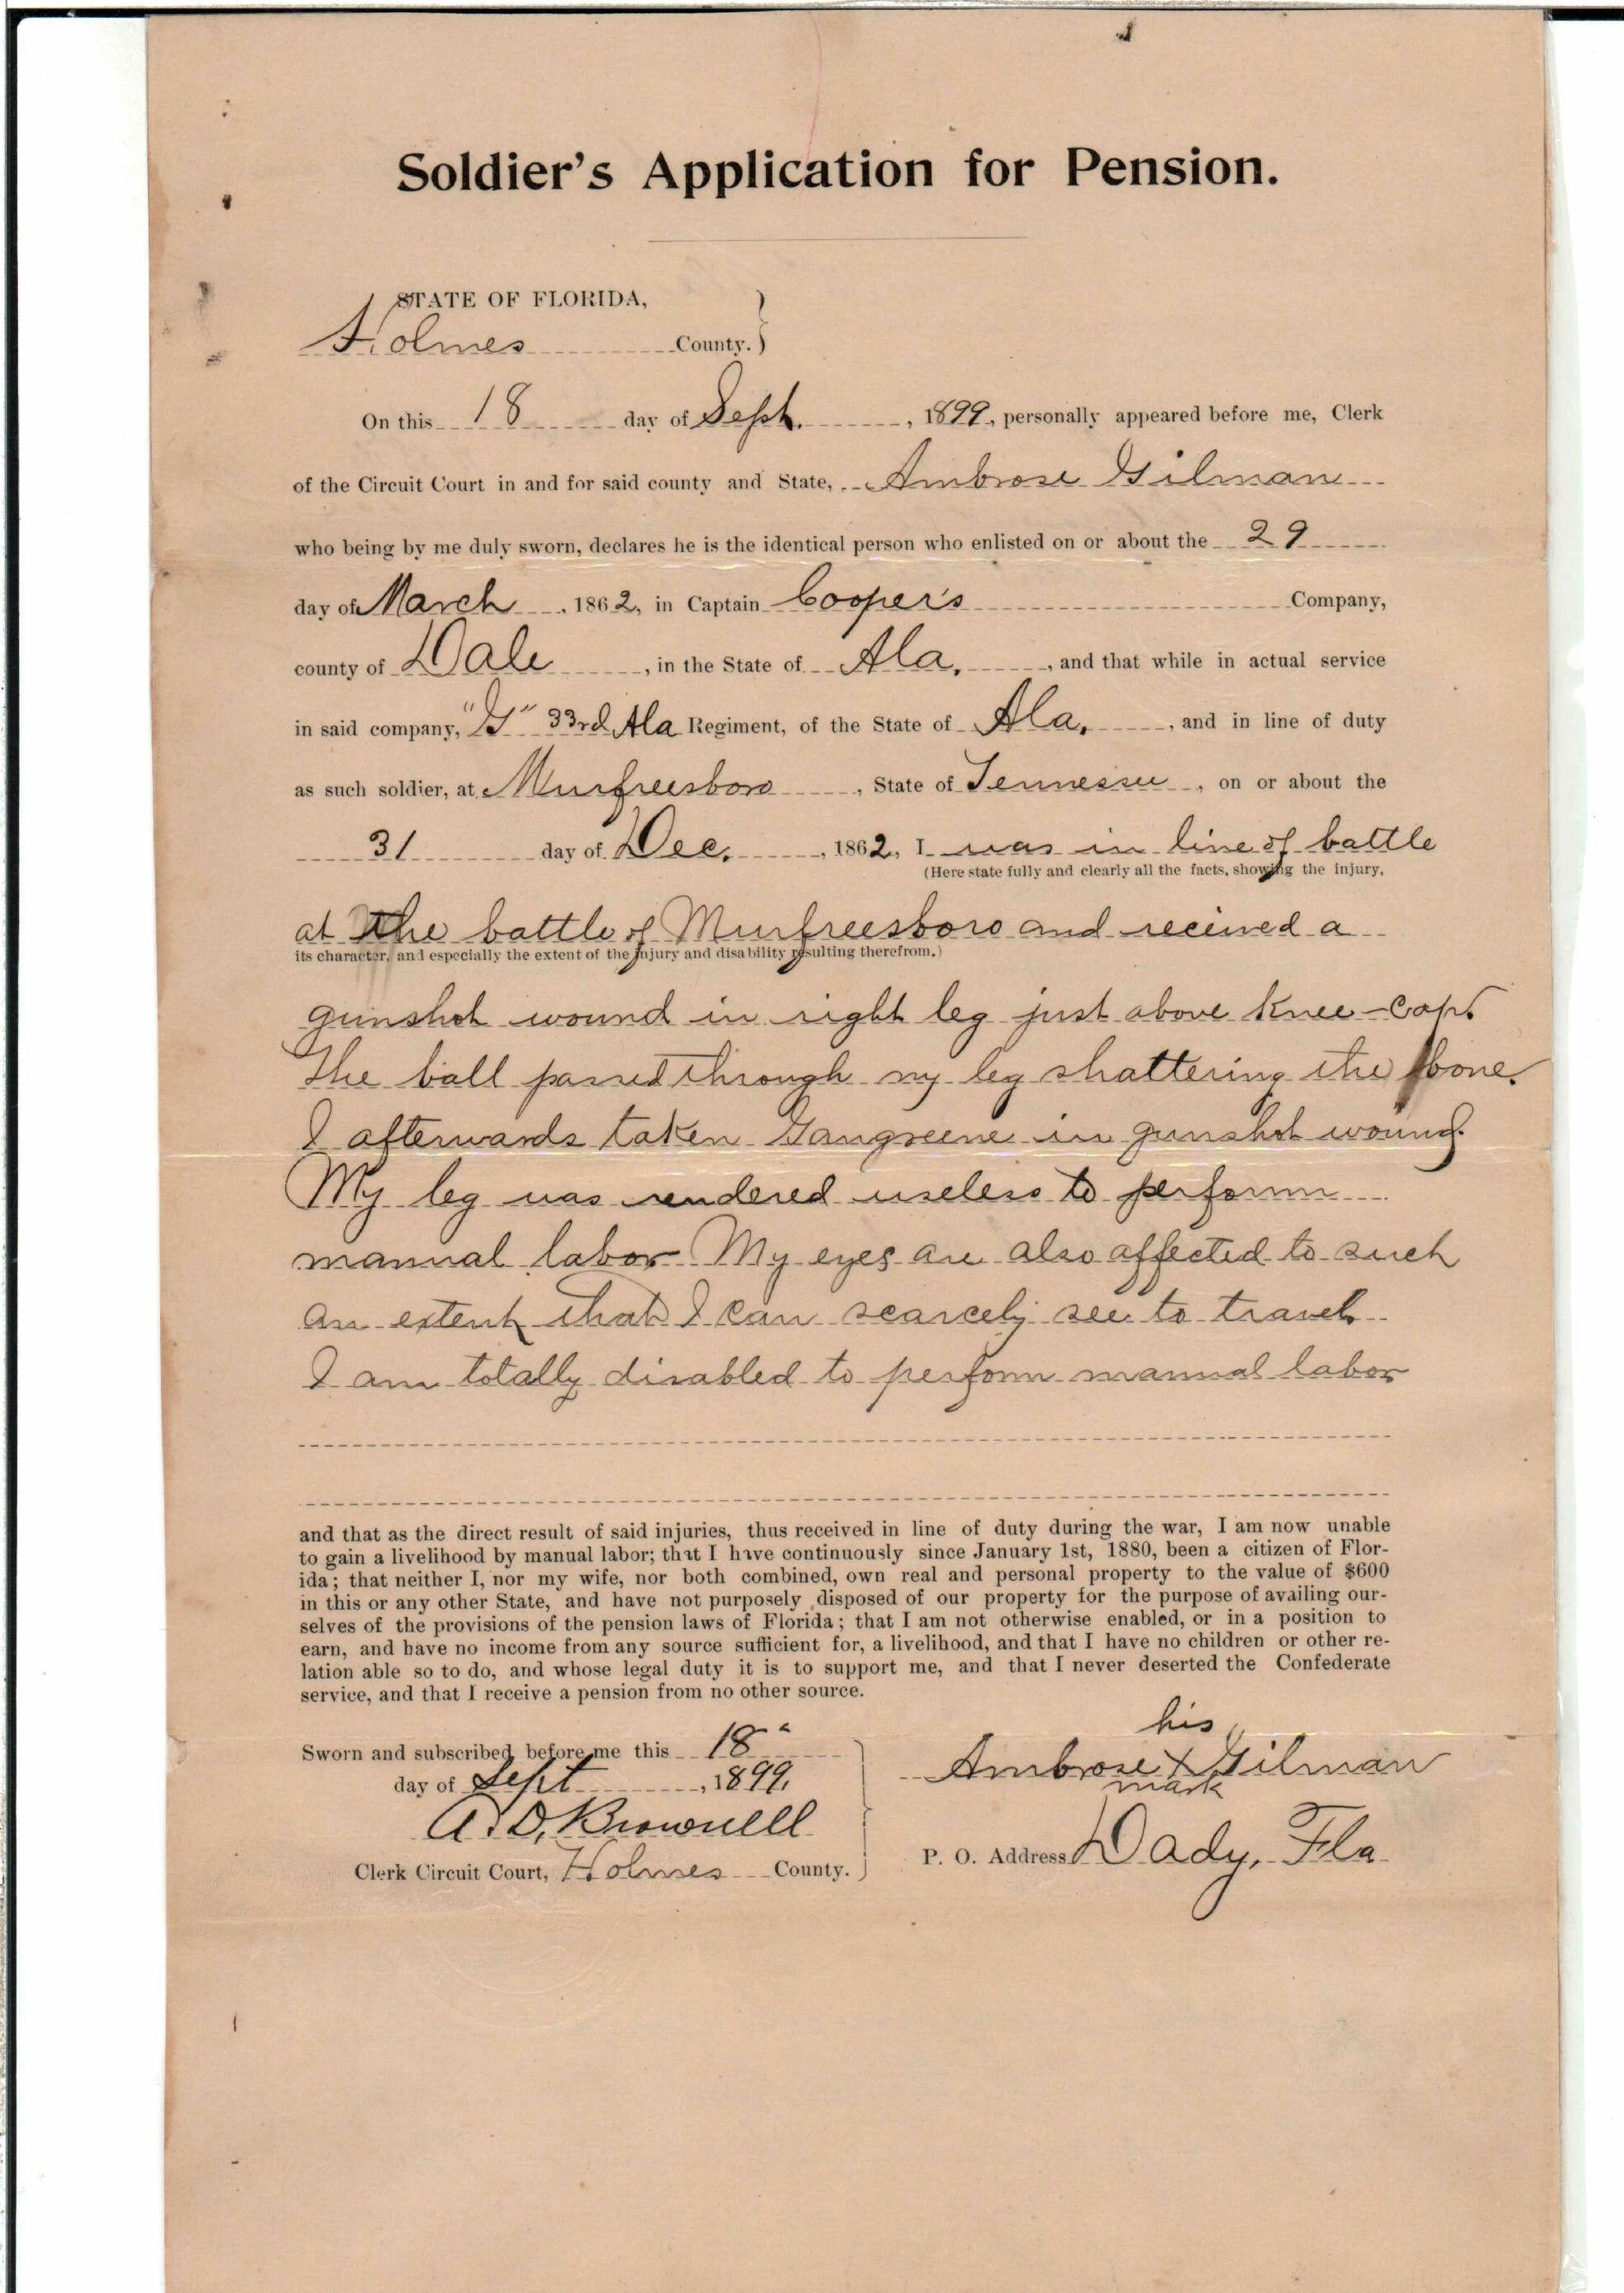 Soldier's Application for Pension.
STATE OF FLORIDA,
Holmes County.
On this 18 day of Sept. , 1899, personally appeared before me, Clerk
of the Circuit Court in and for said county and State, Ambrose Gilman
who being by me duly sworn, declares he is the identical person who enlisted on or about the 29
day of March , 1862, in Captain Cooper's Company,
county of Dale , in the State of Ala. , and that while in actual service
in said company, "G" 33rd Ala Regiment, of the State of Ala. , and in line of duty
as such soldier, at Murfreesboro , State of Tennessee , on or about the
31 day of Dec. , 1862, I was in line of battle
(Here state fully and clearly all the facts, showing the injury,
at the battle of Murfreesboro and received a
its character, and especially the extent of the injury and disability resulting therefrom.)
gunshot wound in right leg just above knee-cap.
The ball passed through my leg shattering the bone.
I afterwards taken Gangreene in gunshot wound.
My leg was rendered useless to perform
manual labor My eyes are also affected to such
an extent that I can scarcely see to travel.
I am totally disabled to perform manual labor
and that as the direct result of said injuries, thus received in line of duty during the war, I am now unable
to gain a livelihood by manual labor; that I have continuously since January 1st, 1880, been a citizen of Flor-
ida; that neither I, nor my wife, nor both combined, own real and personal property to the value of $600
in this or any other State, and have not purposely disposed of our property for the purpose of availing our-
selves of the provisions of the pension laws of Florida; that I am not otherwise enabled, or in a position to
earn, and have no income from any source sufficient for, a livelihood, and that I have no children or other re-
lation able so to do, and whose legal duty it is to support me, and that I never deserted the Confederate
service, and that I receive a pension from no other source.
Sworn and subscribed before me this 18"
day of Sept , 1899.
A. D. Brownell
Clerk Circuit Court, Holmes County.
his
Ambrose X Gilman
mark
P. O. Address Dady, Fla